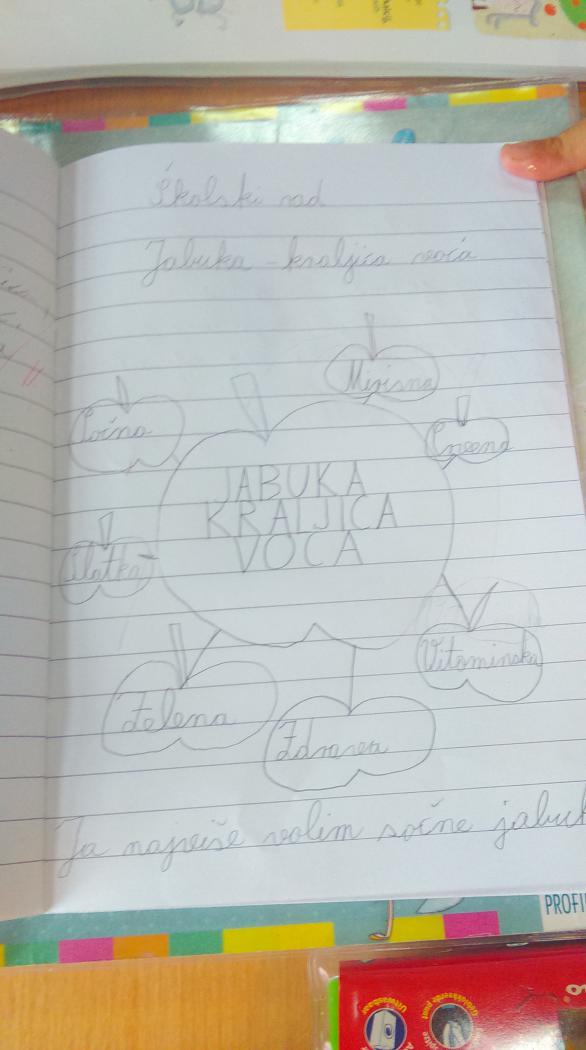 Školski rad
Jabuka - kraljica voća
Mirisna
Sočna
Crvena
JABUKA
KRALJICA
VOĆA
Slatka
Vitaminska
Zelena
Zdrava
Ja najviše volim sočne jabuk
PROFI
Uitwasbaar